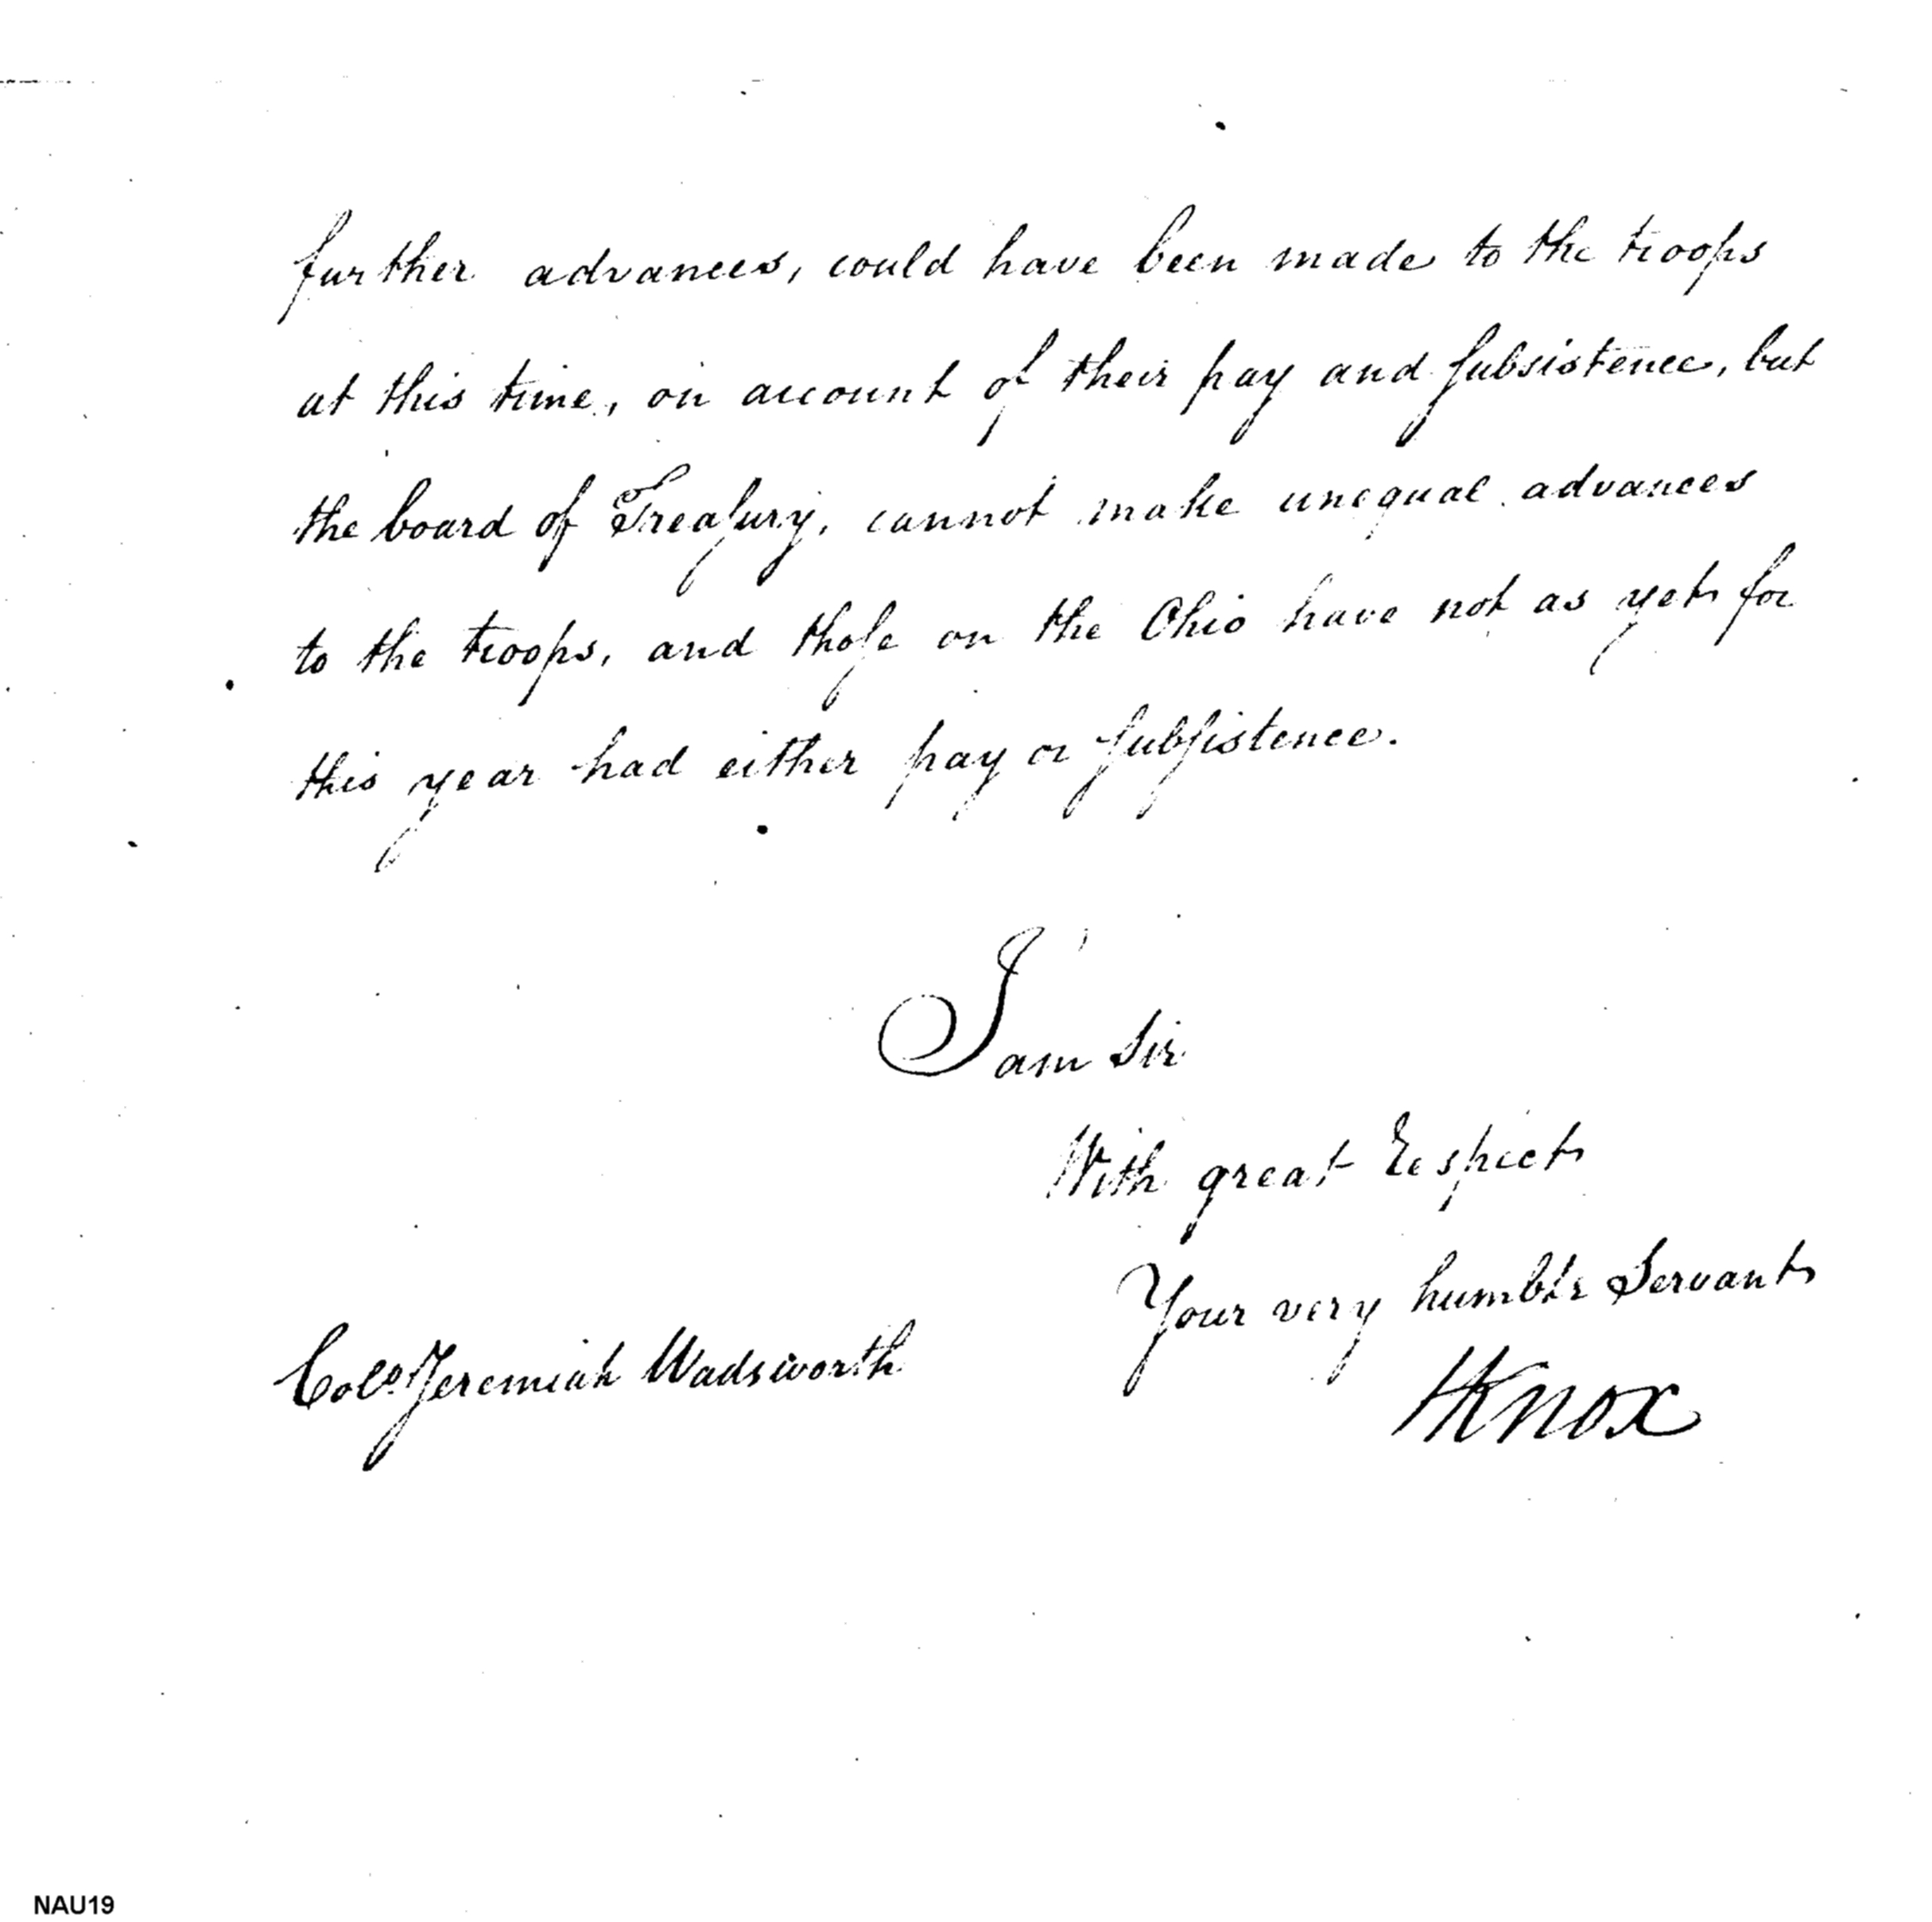 further advances, could have been made to the troops
at this time, on account of their pay and subsistence, but
the board of Treasury, cannot make unequal advances
to the troops, and those on the Ohio have not as yet for
this year had either pay or subsistence.
I am Sir
With great Respect
Your very humble Servant
Colo. Jeremiah Wadsworth
HKnox
NAU19